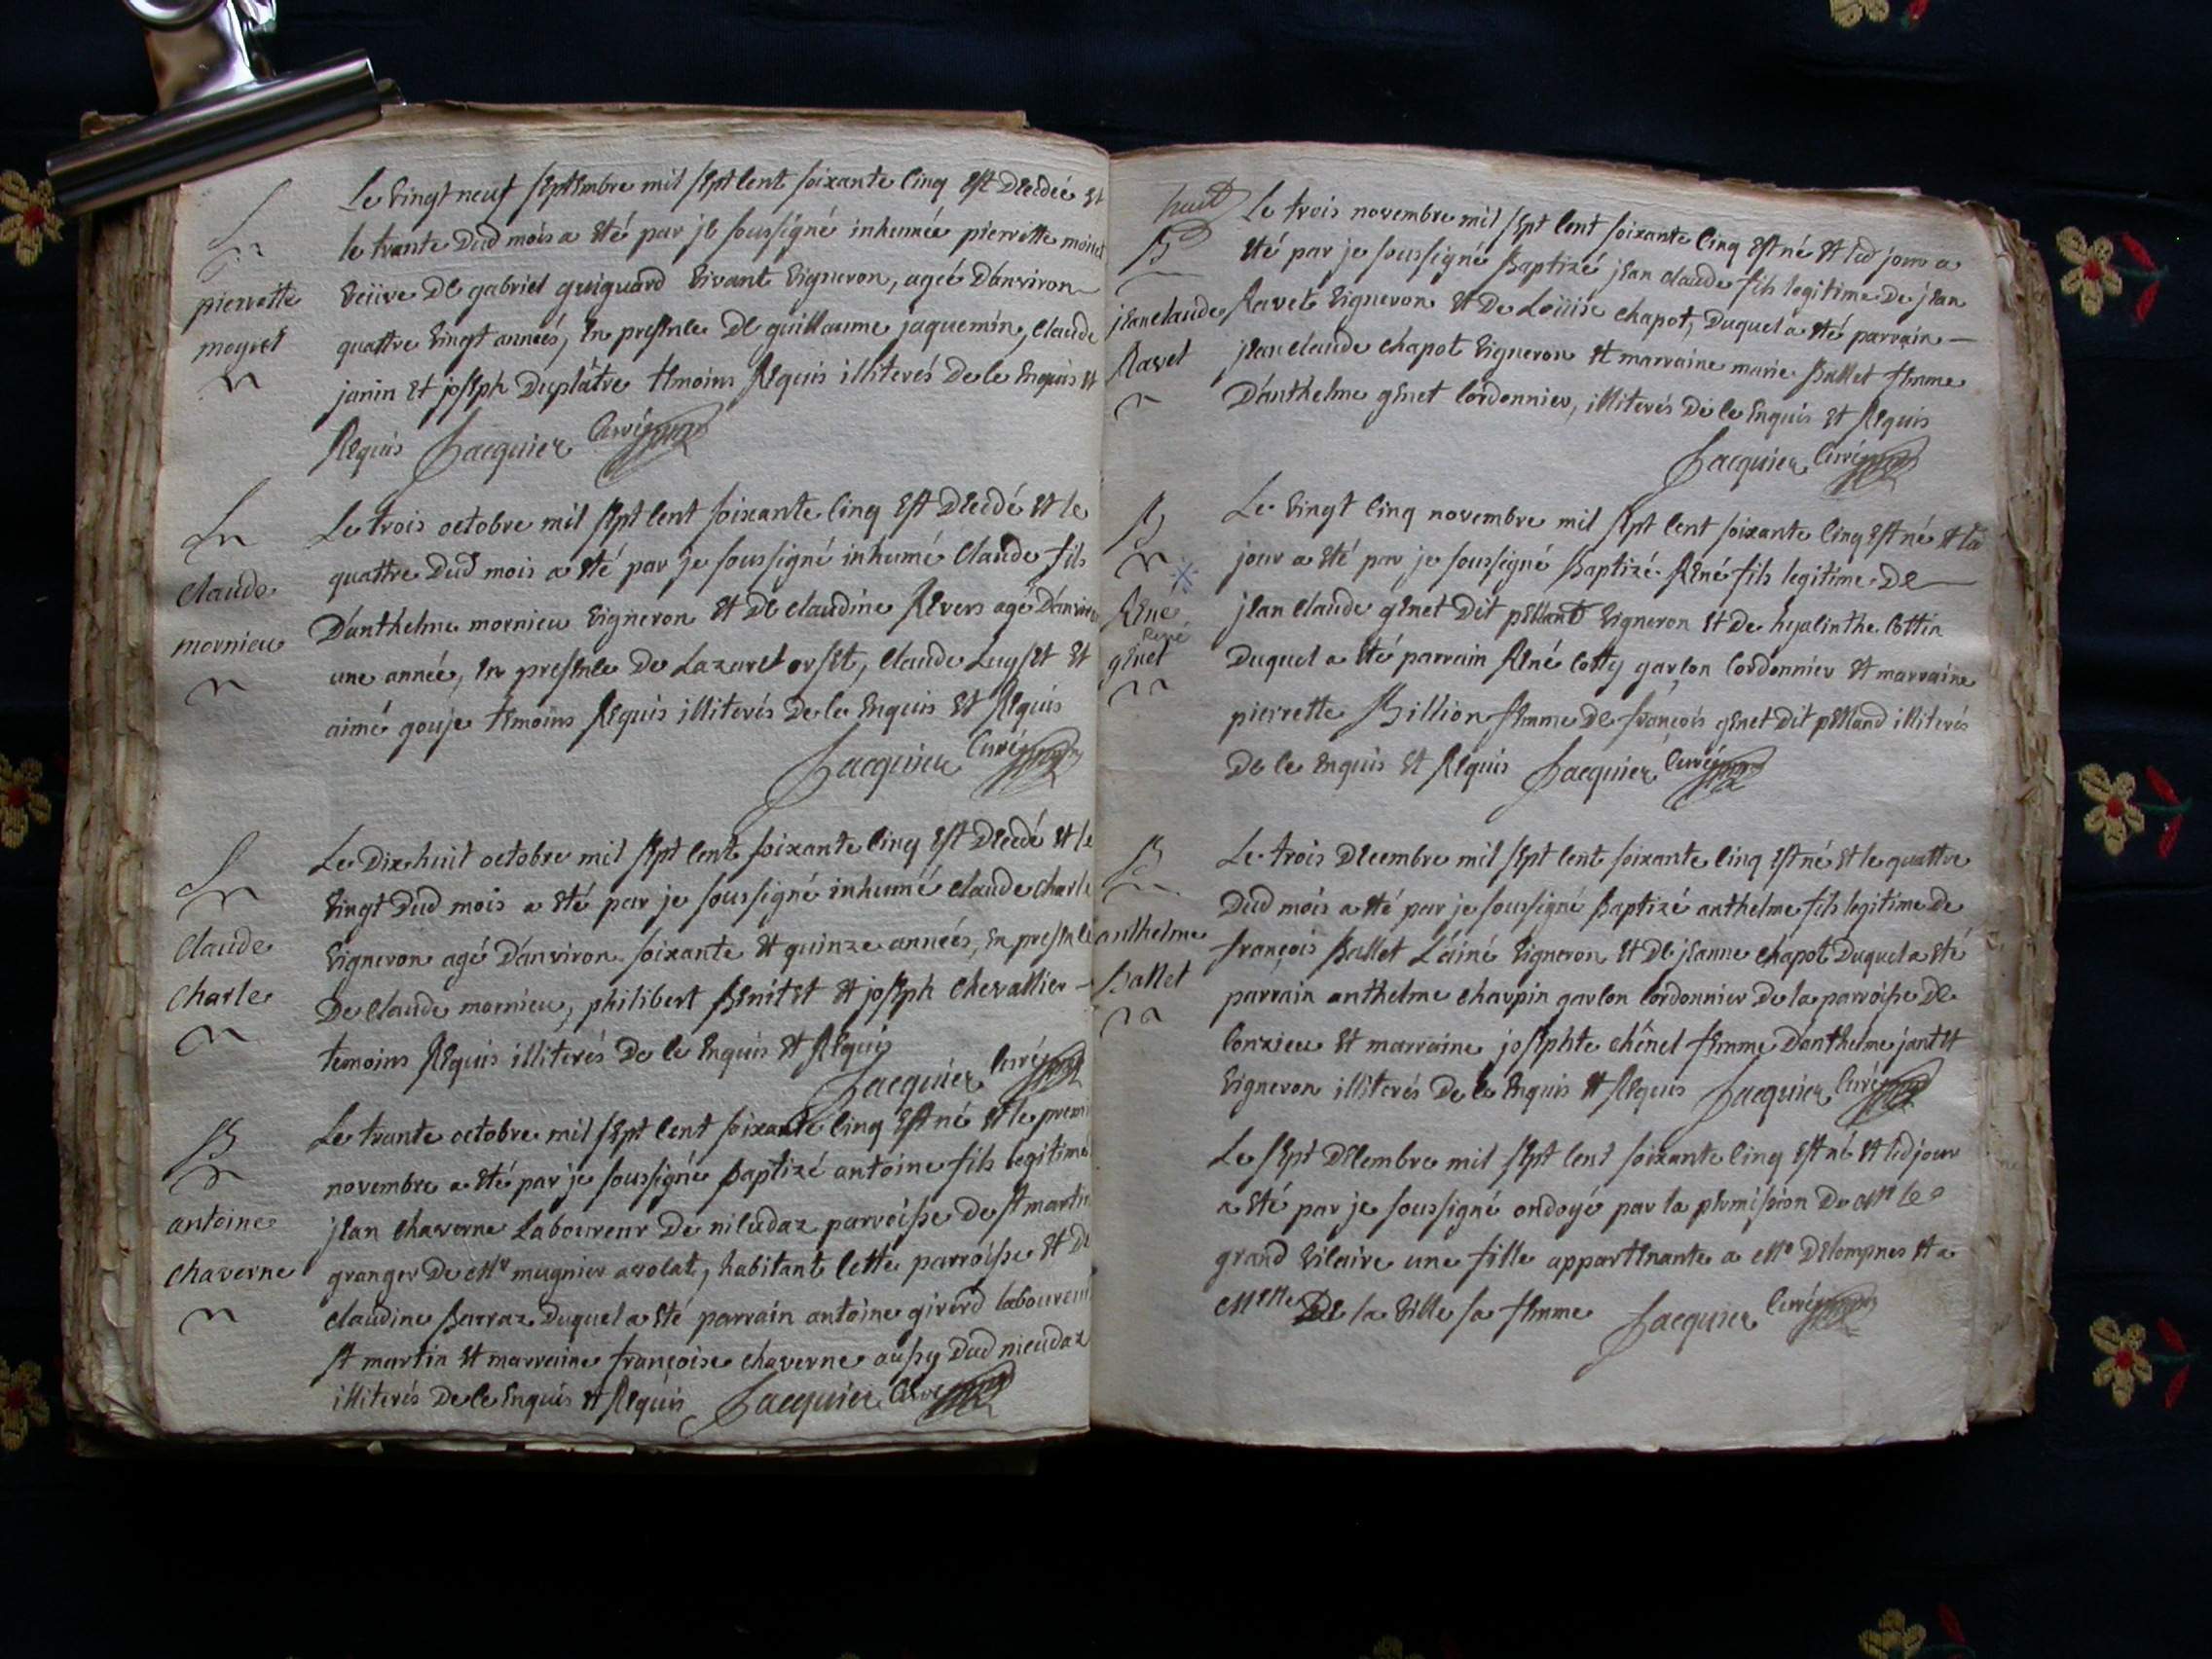 Le vingt neuf septembre mil sept cent soixante cinq est decedée et
le trante dud mois a eté par je soussigné inhumée pierrette moiret
pierrette
veüve de gabriel guiguard vivant vigneron, agée d'anviron
moyret
quattre vingt années, en presence de guillaume jaquemin, claude
janin et joseph duplâtre temoins requis illiterés de ce enquis et
requis Jacquier Curé
Le trois octobre mil sept cent soixante cinq est decedé et le
quattre dud mois a eté par je soussigné inhumé claude fils
claude
d'anthelme mornieu vigneron et de claudine Revers agé d'anviron
mornieu
une année, en presence de Lazare orset, claude Luyset et
aimé gouje temoins requis illiterés de ce enquis et requis
Jacquier Curé
Le dix huit octobre mil sept cent soixante cinq est decedé et le
vingt dud mois a eté par je soussigné inhumé claude charle
claude
vigneron agé d'anviron soixante et quinze années, en presence
charle
de claude mornieu, philibert benitet et joseph chevallier
temoins requis illiterés de ce enquis et requis
Jacquier Curé
B
Le trante octobre mil sept cent soixante cinq est né et le premi
novembre a eté par je soussigné baptizé antoine fils legitime
antoine
jean chaverne Laboureur de niludaz parroisse de st martin
chaverne
granger de Mr mugnier avolat, habitant cette parroisse et de
claudine barraz duquel a eté parrain antoine girerd laboureur
st martin et marraine françoise chaverne aussy dud nieudaz
illiterés de ce enquis et requis Jacquier Curé
huit
Le trois novembre mil sept cent soixante cinq est né et led jour a
B
eté par je soussigné baptizé jean claude fils legitime de jean
jean claude
Ravet vigneron et de Loüise chapot, duquel a eté parrain
Ravet
jean claude chapot vigneron et marraine marie ballet femme
d'anthelme genet cordonnier, illiterés de ce enquis et requis
Jacquier Curé
B
Le vingt cinq novembre mil sept cent soixante cinq est né et led
jour a eté par je soussigné baptizé René fils legitime de
René
jean claude genet dit pelland vigneron et de hyacinthe cottin
René
genet
duquel a eté parrain René cotty garcon cordonnier et marraine
pierrette Billion femme de françois genet dit pelland illiterés
de ce enquis et requis Jacquier Curé
B
Le trois decembre mil sept cent soixante cinq est né et le quattre
dud mois a eté par je soussigné baptizé anthelme fils legitime de
anthelme
françois ballet L'ainé vigneron et de jeanne chapot duquel a eté
ballet
parrain anthelme charpin garcon cordonnier de la parroisse de
conzieu et marraine josephte chênel femme d'anthelme jantet
vigneron illiterés de ce enquis et requis Jacquier Curé
Le sept decembre mil sept cent soixante cinq est né et led jour
a eté par je soussigné ondoyé par la permission de Mr Le
grand vicaire une fille appartenante a Mr delompnes et a
Melle de la ville sa femme Jacquier Curé